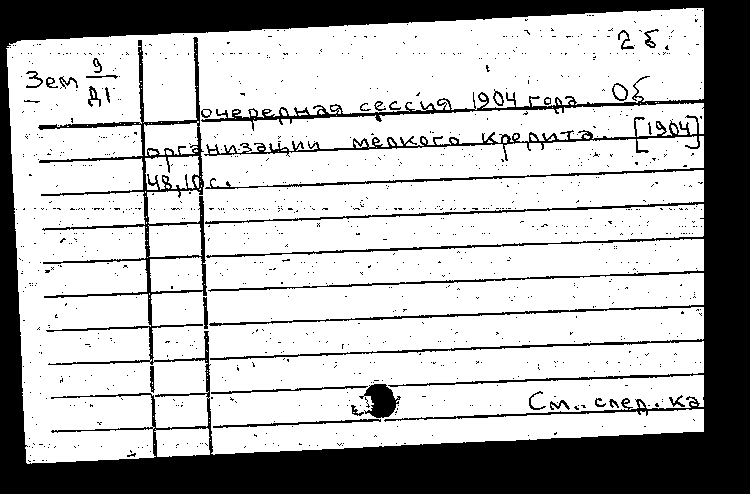 2 б.
Зем 9/Д1
очередная сессия 1904 года. Об
организации мелкого кредита. [1904]
48,10 с.
См. след. ка